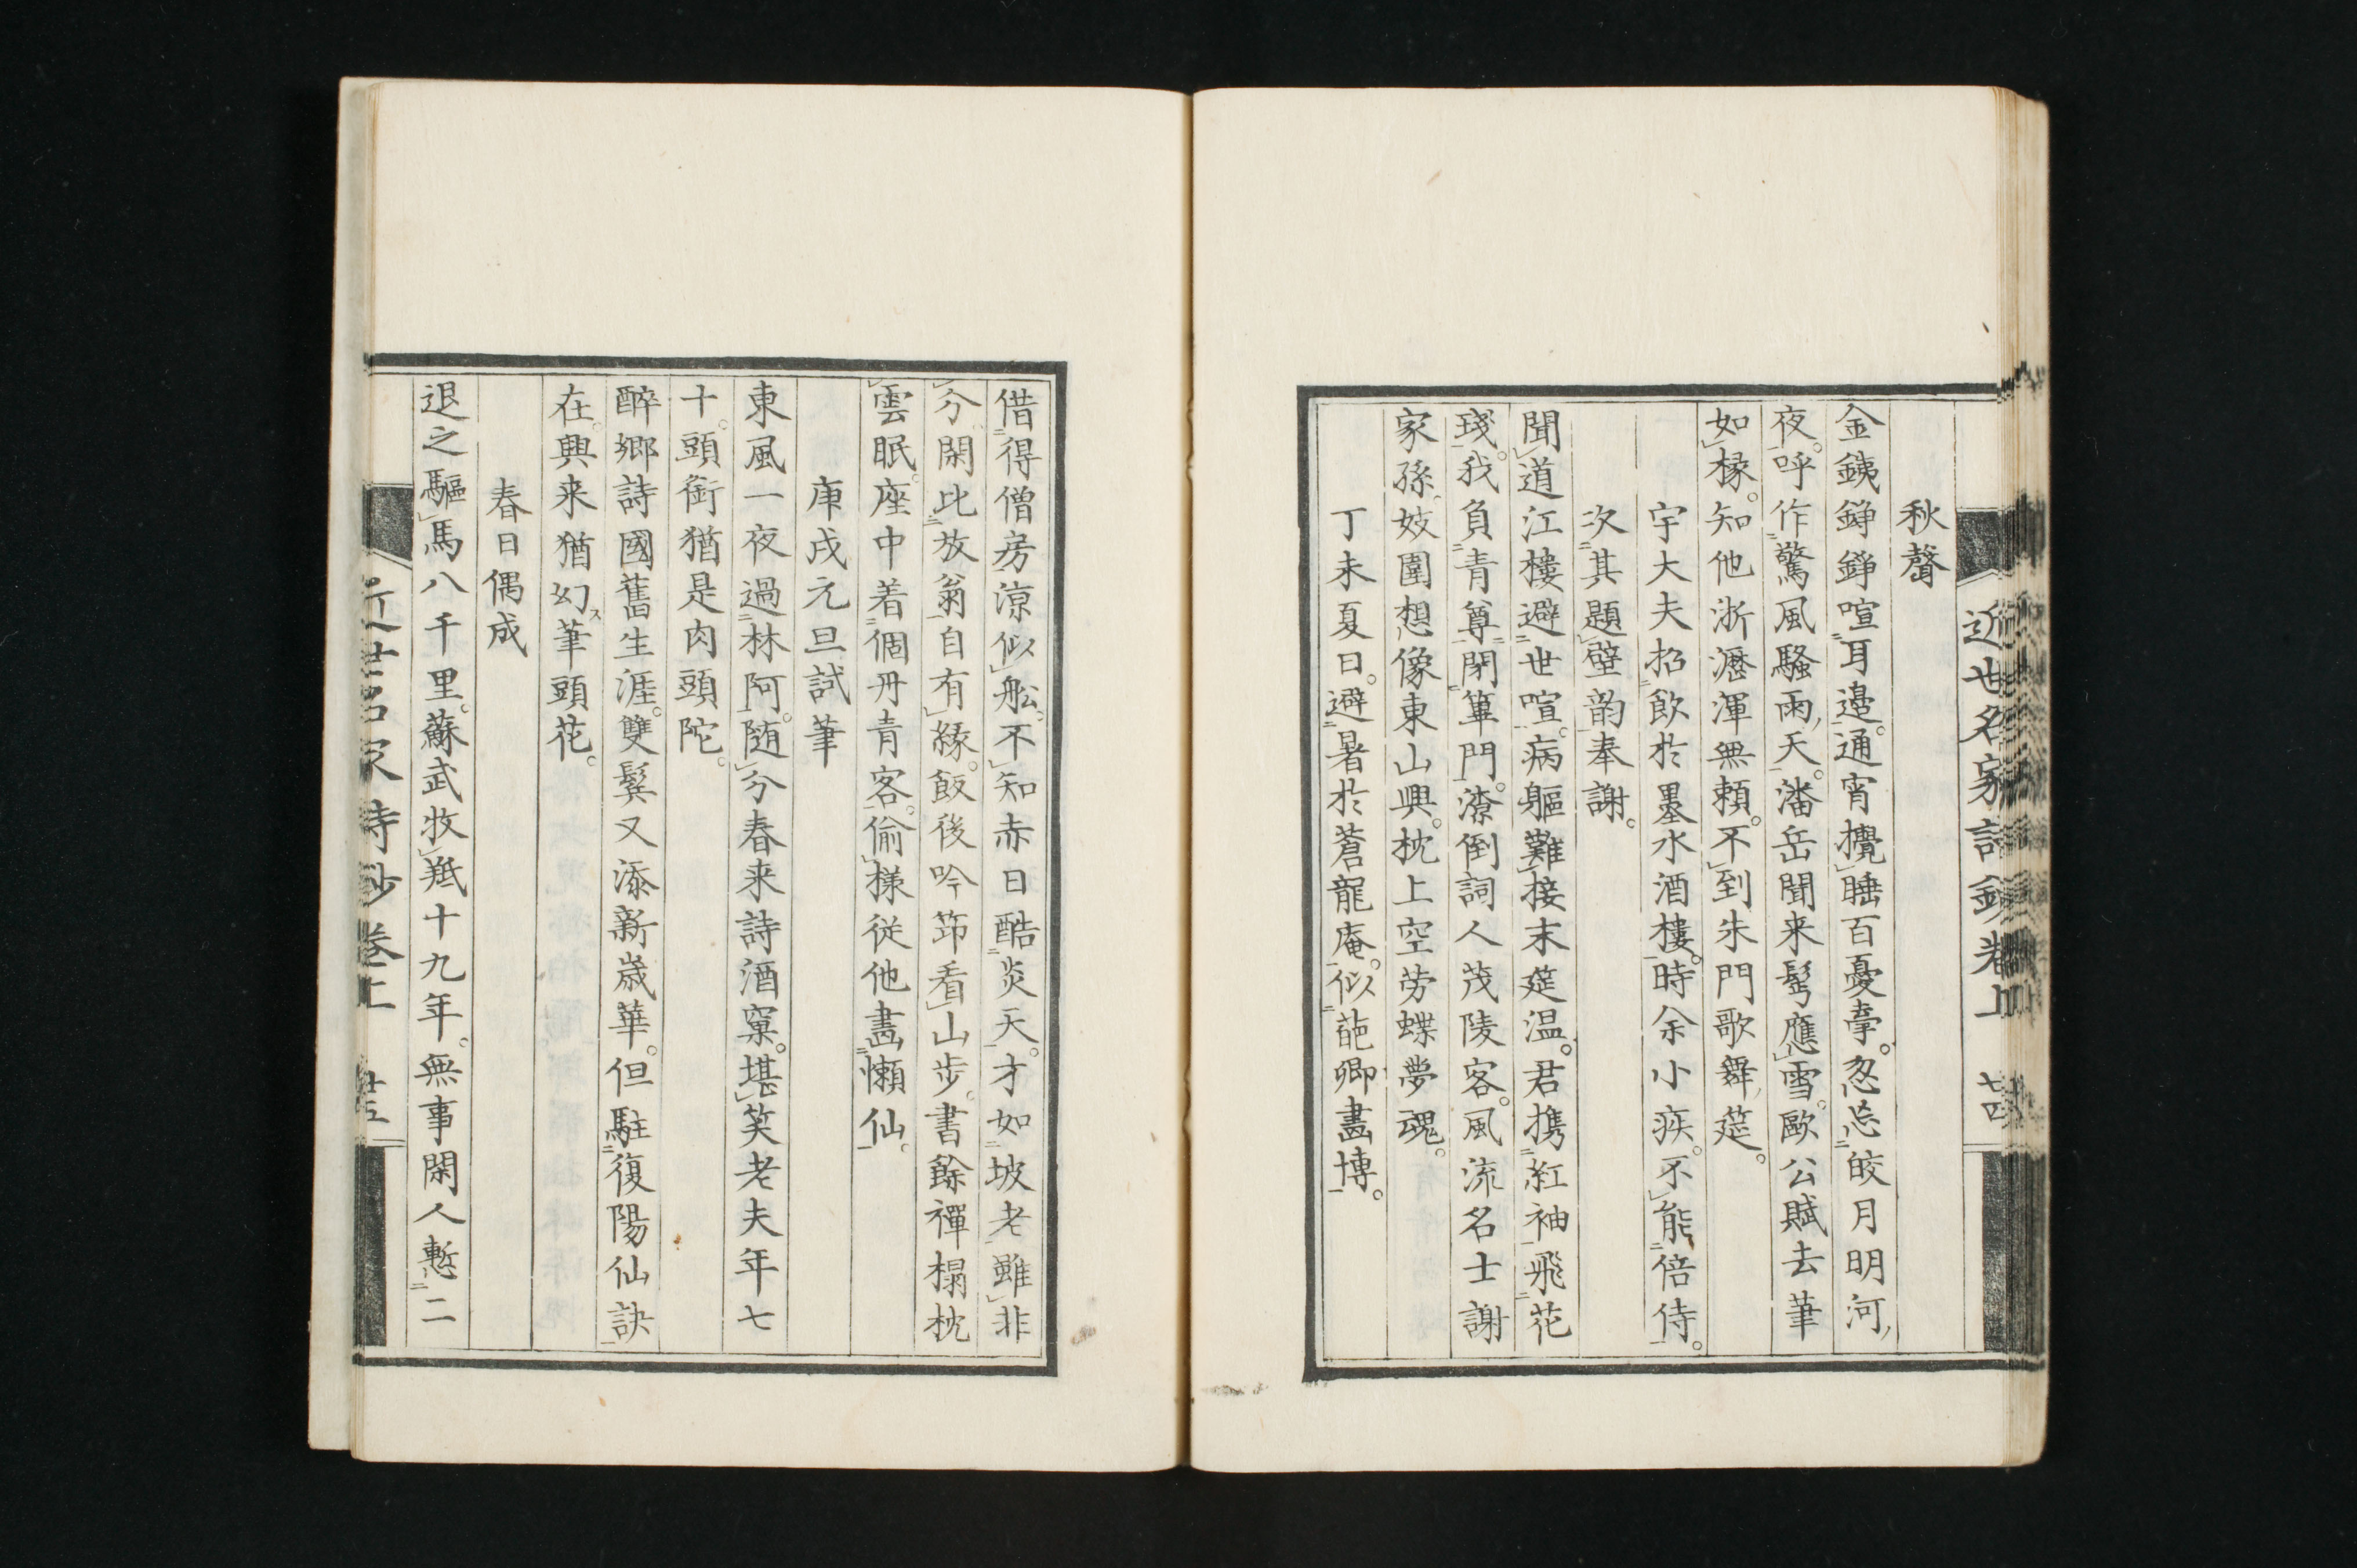 近世名家詩鈔卷上
秋聲
金銕錚錚喧耳邊。通宵攪睡百憂牽。忽忘皎月明河
夜。呼作驚風騷雨天。潘岳聞来髩應雪。歐公賦去筆
如椽。知他浙瀝渾無頼。不到朱門歌舞筵。
宇大夫招飲於墨水酒樓。時余小疾。不能倍侍。
次其題壁韵奉謝。
聞道江樓避世喧。病軀難接末筵温。君携紅袖飛花
琖。我負青尊閉篳門。潦倒詞人茂陵客。風流名士謝
家孫。妓圍想像東山興。枕上空勞蝶夢魂。
丁未夏日。避暑於蒼龍庵。似葩卿畵博。
借得僧房涼似舩。不知赤日酷炎天。才如坡老雖非
分。閑比放翁自有緣。飯後吟笻看山步。書餘禪榻枕
雲眠。座中着個丹青客。偷様従他畵懶仙。
庚戌元旦試筆
東風一夜過林阿。随分春来詩酒窠。堪笑老夫年七
十。頭銜猶是肉頭陀。
醉鄉詩國舊生涯。雙鬓又添新歳華。但駐復陽仙訣
在。興来猶幻筆頭花。
春日偶成
退之驅馬八千里。蘇武牧羝十九年。無事閑人慙二
近世名家詩鈔卷上 廿五